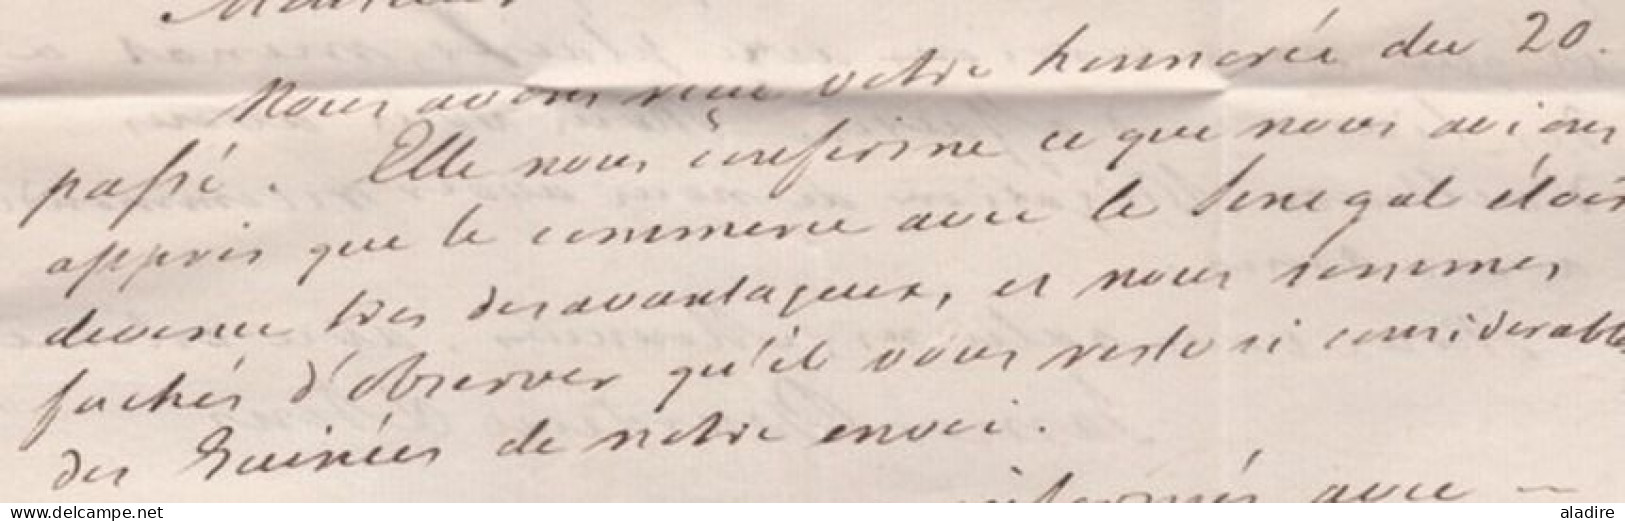 Monsieur
Nous avons reçu votre honnorée du 20.
passé. Elle nous confirme ce que nous avions
appris que le commerce avec le Senegal étoit
devenu tres desavantageux, et nous sommes
fachés d'observer qu'il vous reste si considerable
des Guinées de notre envoi.
informés avec
www.delcampe.net
aladire